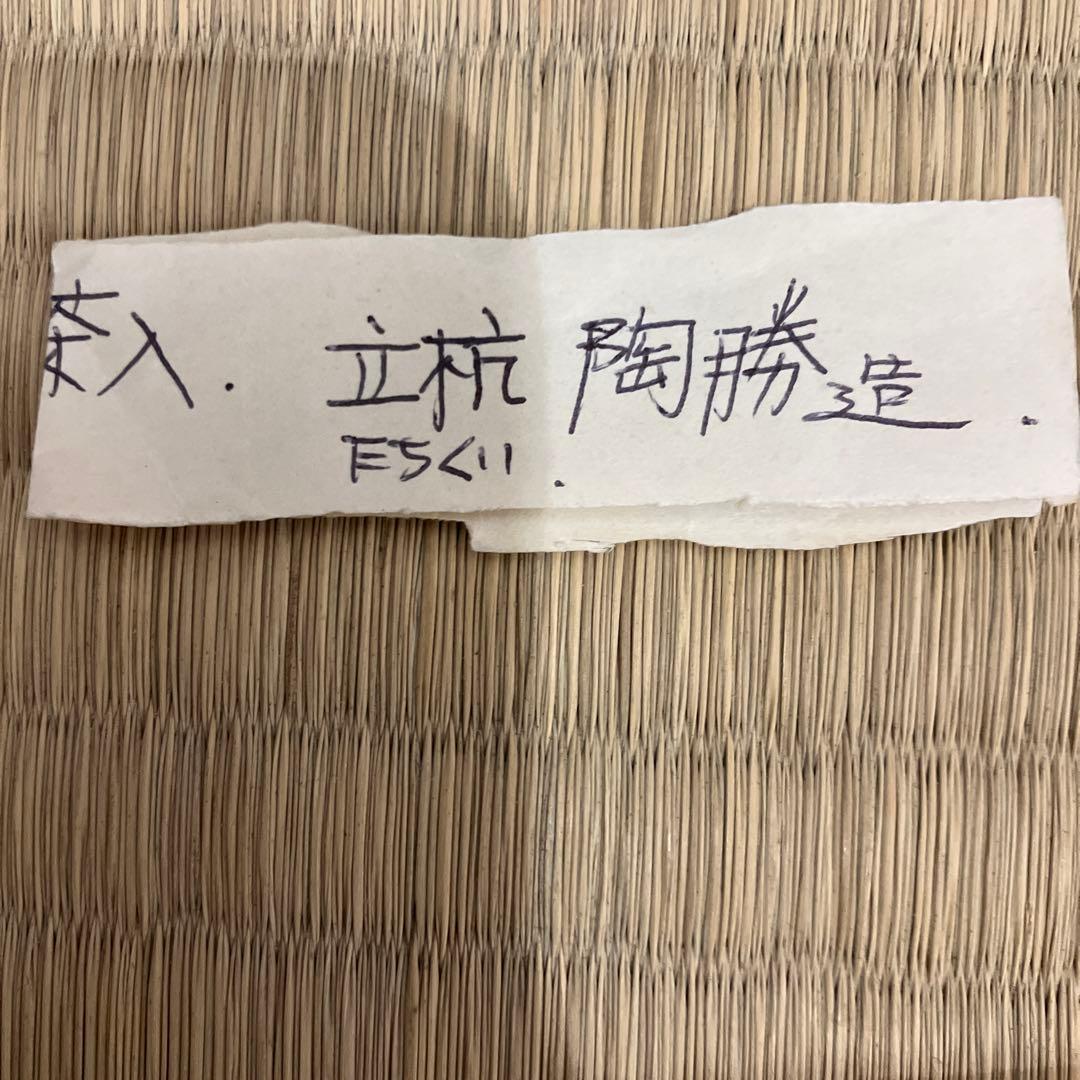 茶入. 立杭 陶勝造.
たちくい.